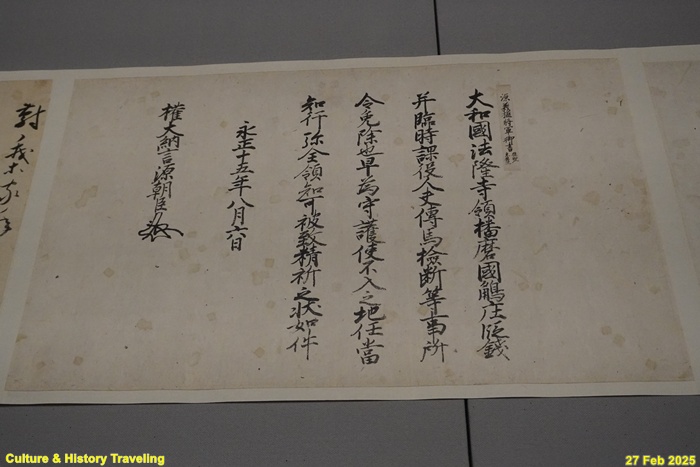 大和國法隆寺領播磨國鵤庄段錢
并臨時課役人夫傳馬檢断等事所
令免除也早為守護使不入之地任當
知行弥全領知可被致精祈之状如件
永正十五年八月六日
權大納言源朝臣
義澄將軍御書
Culture & History Traveling
27 Feb 2025